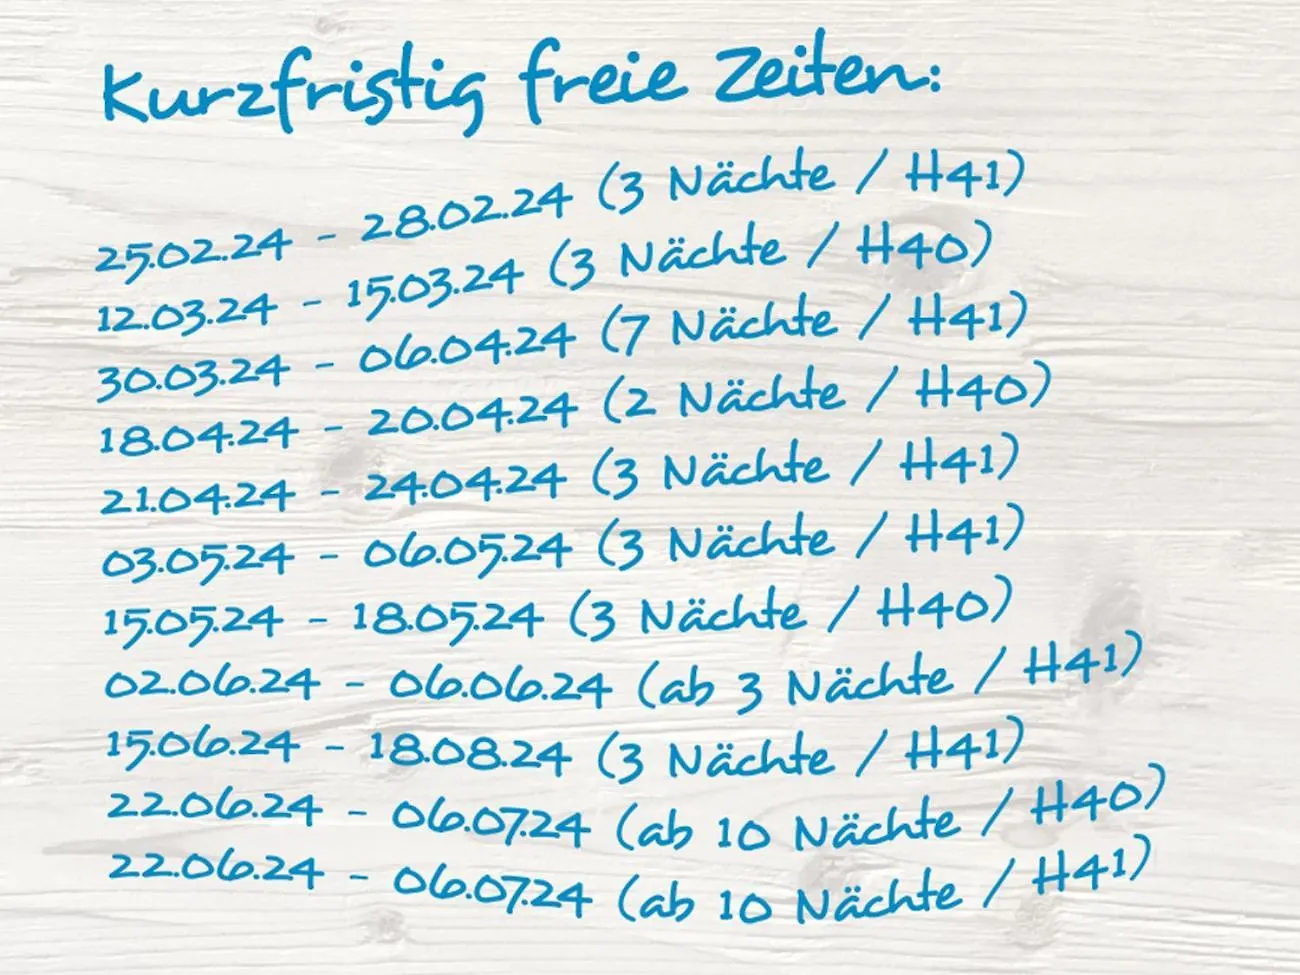 Kurzfristig freie Zeiten:
25.02.24 - 28.02.24 (3 Nächte / H41)
12.03.24 - 15.03.24 (3 Nächte / H40)
30.03.24 - 06.04.24 (7 Nächte / H41)
18.04.24 - 20.04.24 (2 Nächte / H40)
21.04.24 - 24.04.24 (3 Nächte / H41)
03.05.24 - 06.05.24 (3 Nächte / H41)
15.05.24 - 18.05.24 (3 Nächte / H40)
02.06.24 - 06.06.24 (ab 3 Nächte / H41)
15.06.24 - 18.08.24 (3 Nächte / H41)
22.06.24 - 06.07.24 (ab 10 Nächte / H40)
22.06.24 - 06.07.24 (ab 10 Nächte / H41)